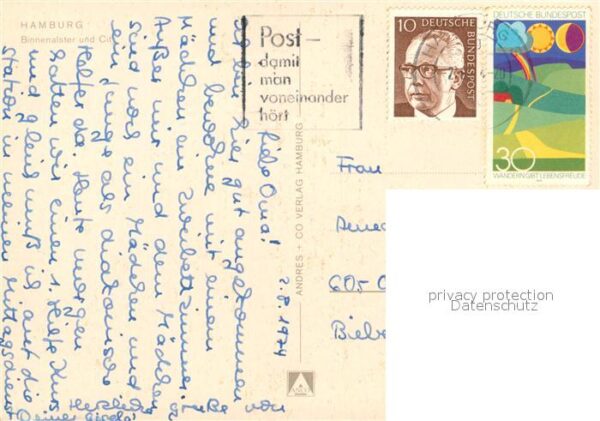 HAMBURG
Binnenalster und City
Post –
damit
man
voneinander
hört
10
DEUTSCHE
BUNDESPOST
DEUTSCHE BUNDESPOST
30
WANDERN GIBT LEBENSFREUDE
ANDRES + CO VERLAG HAMBURG
2.8.1974
Liebe Oma!
Ich bin hier gut angekommen
und bewohne mit einem
Mädchen ein Zweibettzimmer.
Außer mir und dem Mädchen
sind noch ein Mädchen und
ein Junge als diakonische
Helfer da. Heute morgen
hatten wir einen 1. Hilfe Kurs
und gleich muß ich auf die
Station in meinen Mittagsdienst
Herzliche Grüße von
Deiner
Frau
605 O
Biebe
privacy protection
Datenschutz